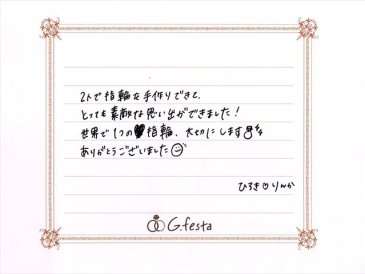 2人で指輪を手作りできて、
とっても素敵な思い出ができました!
世界で1つの♥指輪、大切にします
ありがとうございました☺
ひろき♡りんか
G.festa